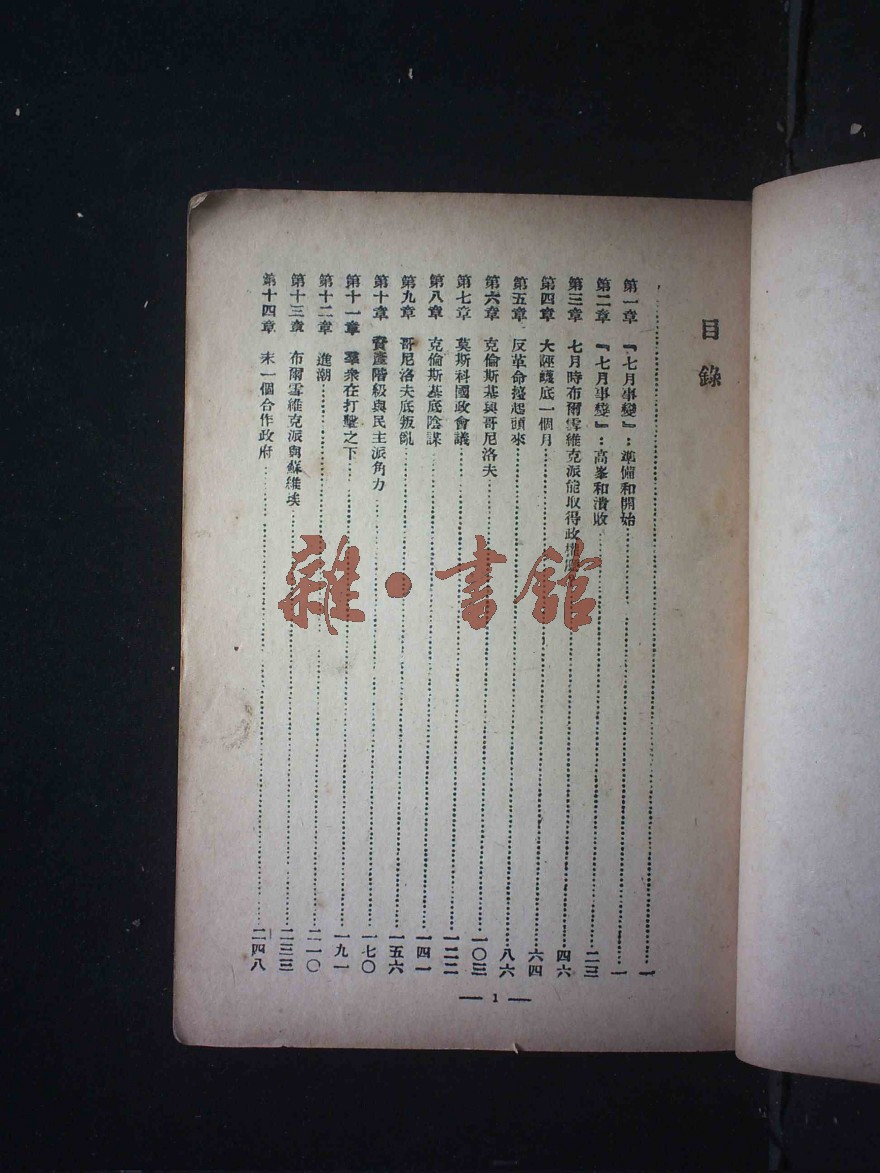 目錄
……一
第一章 『七月事變』：準備和開始……一
第二章 『七月事變』：高峯和潰敗……二三
第三章 七月時布爾雪維克派能取得政權……四六
第四章 大誣衊底一個月……六四
第五章 反革命擡起頭來……八六
第六章 克倫斯基與哥尼洛夫……一〇三
第七章 莫斯科國政會議……一二二
第八章 克倫斯基底陰謀……一四一
第九章 哥尼洛夫底叛亂……一五六
第十章 資產階級與民主派角力……一七〇
第十一章 羣衆在打擊之下……一九一
第十二章 進潮……二一〇
第十三章 布爾雪維克派與蘇維埃……二三三
第十四章 末一個合作政府……二四八
— 1 —
雜·書館